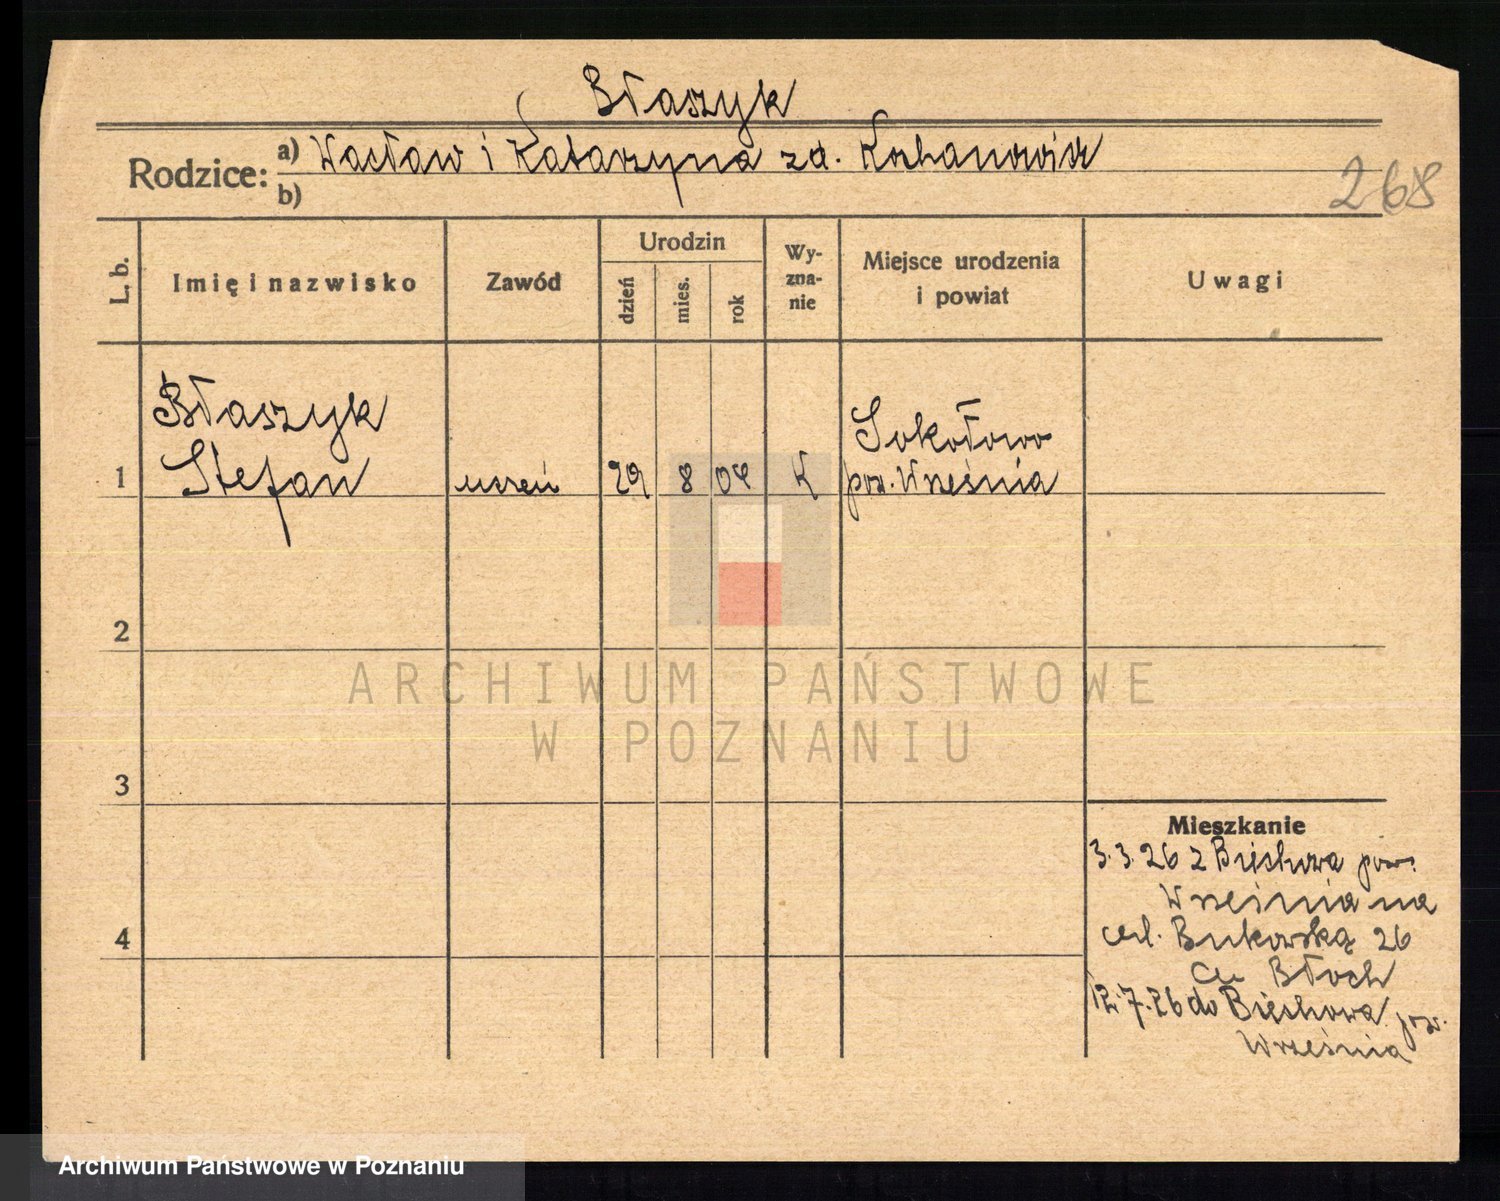 Błaszyk
Rodzice: a) Wacław i Katarzyna zd. Kochanowicz
b)
268
L. b.
Imię i nazwisko
Zawód
Urodzin
dzień
mies.
rok
Wy-
zna-
nie
Miejsce urodzenia
i powiat
Uwagi
Błaszyk
1 Stefan uczeń 29 8 04 K
Sokołowo
pow. Września
2
3
4
Mieszkanie
3.3.26 z Biechowa pow.
Września na
ul. Bukowską 26
Błoch
12.7.26 do Biechowa pow.
Września
ARCHIWUM PAŃSTWOWE
W POZNANIU
Archiwum Państwowe w Poznaniu